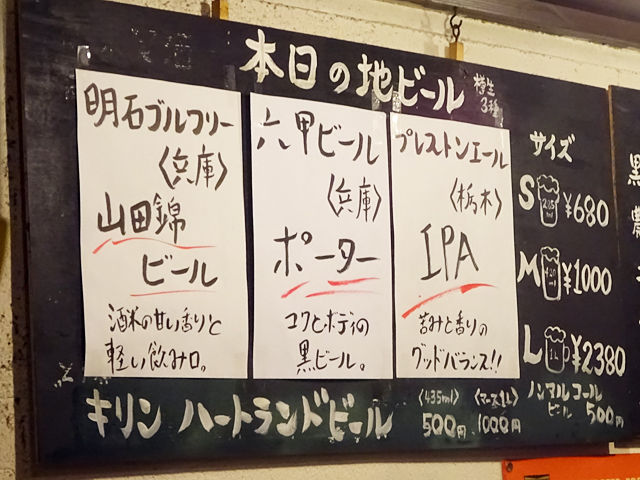 本日の地ビール
樽生
3種
明石ブルワリー
〈兵庫〉
山田錦
ビール
酒米の甘い香りと
軽い飲み口。
六甲ビール
〈兵庫〉
ポーター
コクとボディの
黒ビール。
プレストンエール
〈栃木〉
IPA
苦みと香りの
グッドバランス!!
サイズ
S ¥680
M ¥1000
L 1L ¥2380
キリン ハートランドビール
〈435ml〉
500円
〈マース1L〉
1000円
ノンアルコール
ビール 500円
黒